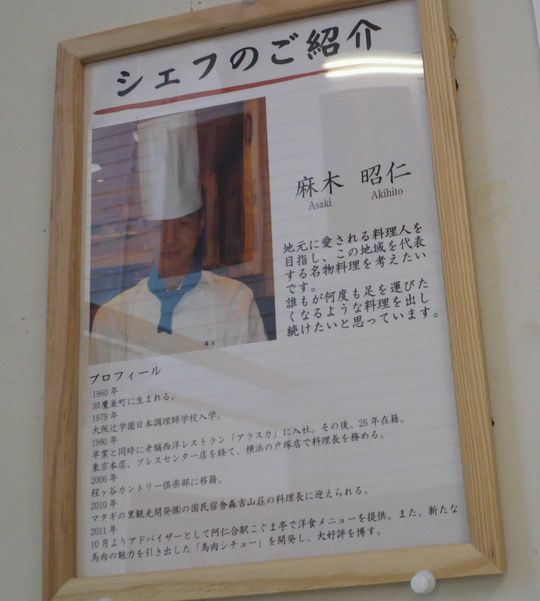 シェフのご紹介
麻木 昭仁
Asaki Akihito
地元に愛される料理人を
目指し、この地域を代表
する名物料理を考えたい
です。
誰もが何度も足を運びた
くなるような料理を出し
続けたいと思っています。
プロフィール
1960年
旧鷹巣町に生まれる。
1979年
大阪辻学園日本調理師学校入学。
1980年
卒業と同時に老舗西洋レストラン「アラスカ」に入社。その後、26年在籍。
東京本店、プレスセンター店を経て、横浜の戸塚店で料理長を務める。
2006年
程ヶ谷カントリー倶楽部に移籍。
2010年
マタギの里観光開発㈱の国民宿舎森吉山荘の料理長に迎えられる。
2011年
10月よりアドバイザーとして阿仁合駅こぐま亭で洋食メニューを提供。また、新たな
馬肉の魅力を引き出した「馬肉シチュー」を開発し、大好評を博す。